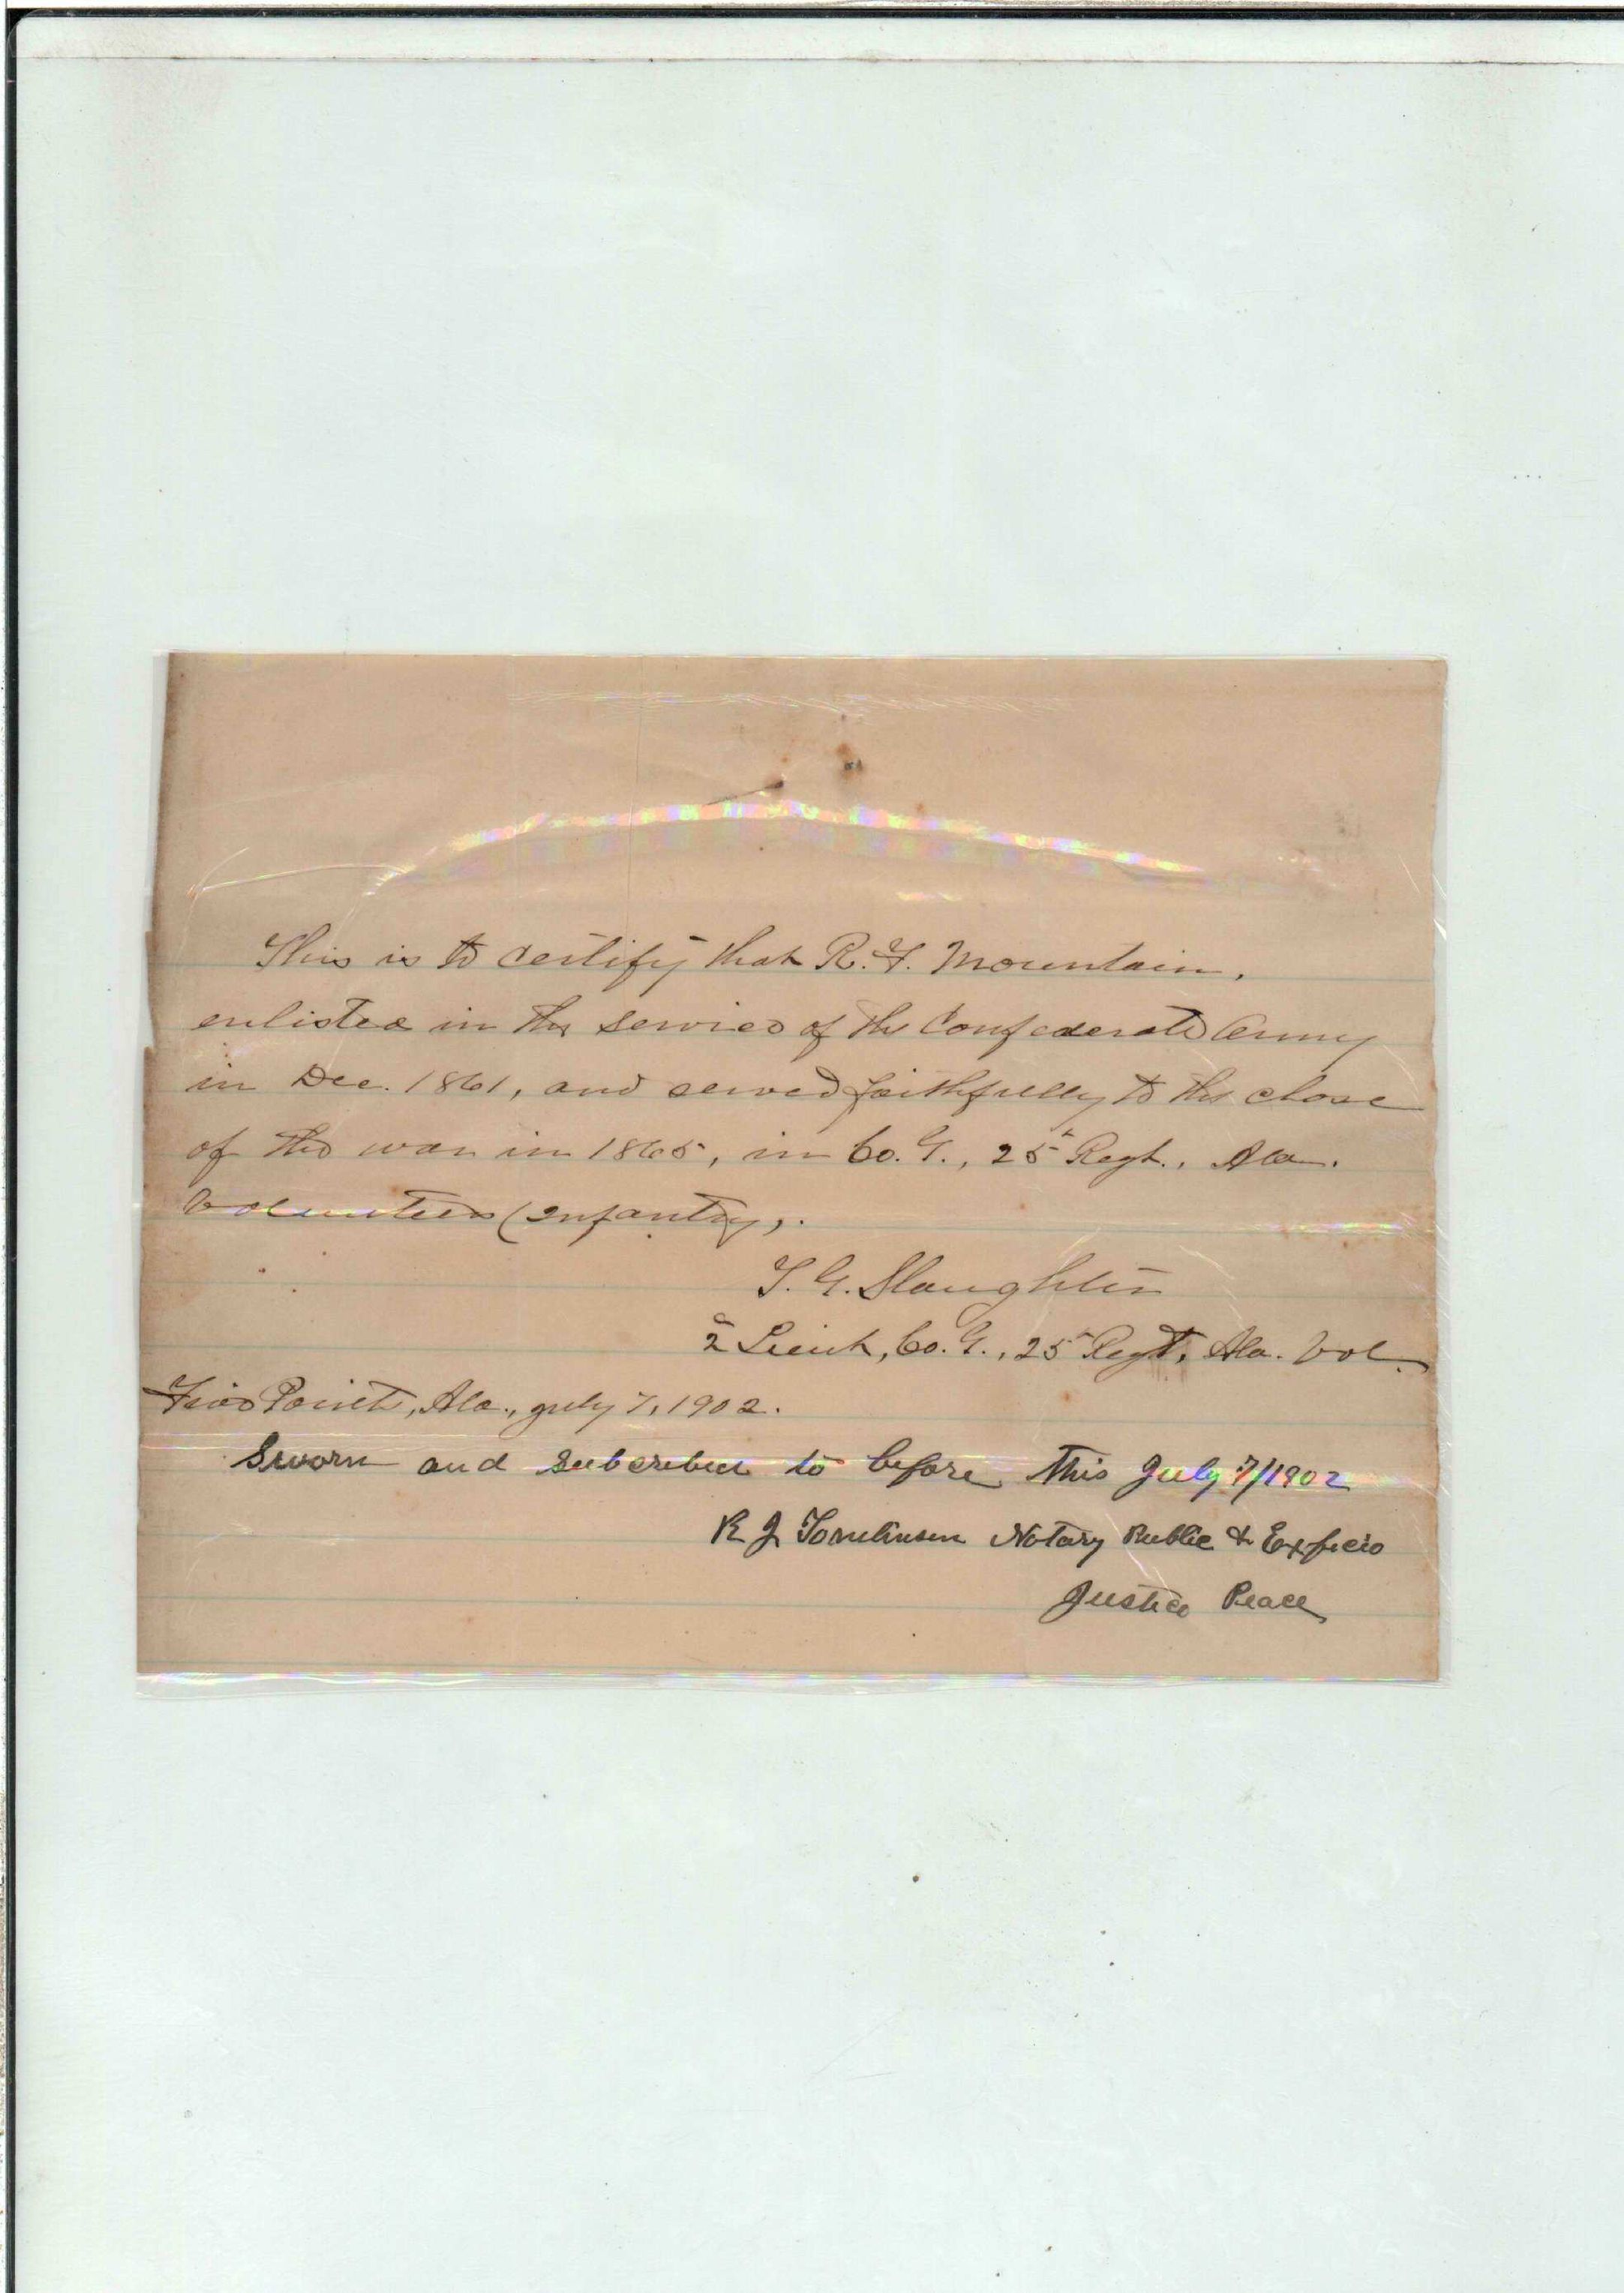 This is to certify that R. F. Mountain,
enlisted in the service of the Confederate Army
in Dec. 1861, and served faithfully to the close
of the war in 1865, in Co. G., 25 Regt., Ala.
Volunteers (Infantry).
T. G. Slaughter
2 Lieut, Co. G., 25 Regt, Ala. Vol.
Five Points, Ala., July 7, 1902.
Sworn and subcribed to before this July 7/1902
R J Tomlinson Notary Public & Exficio
Justice Peace